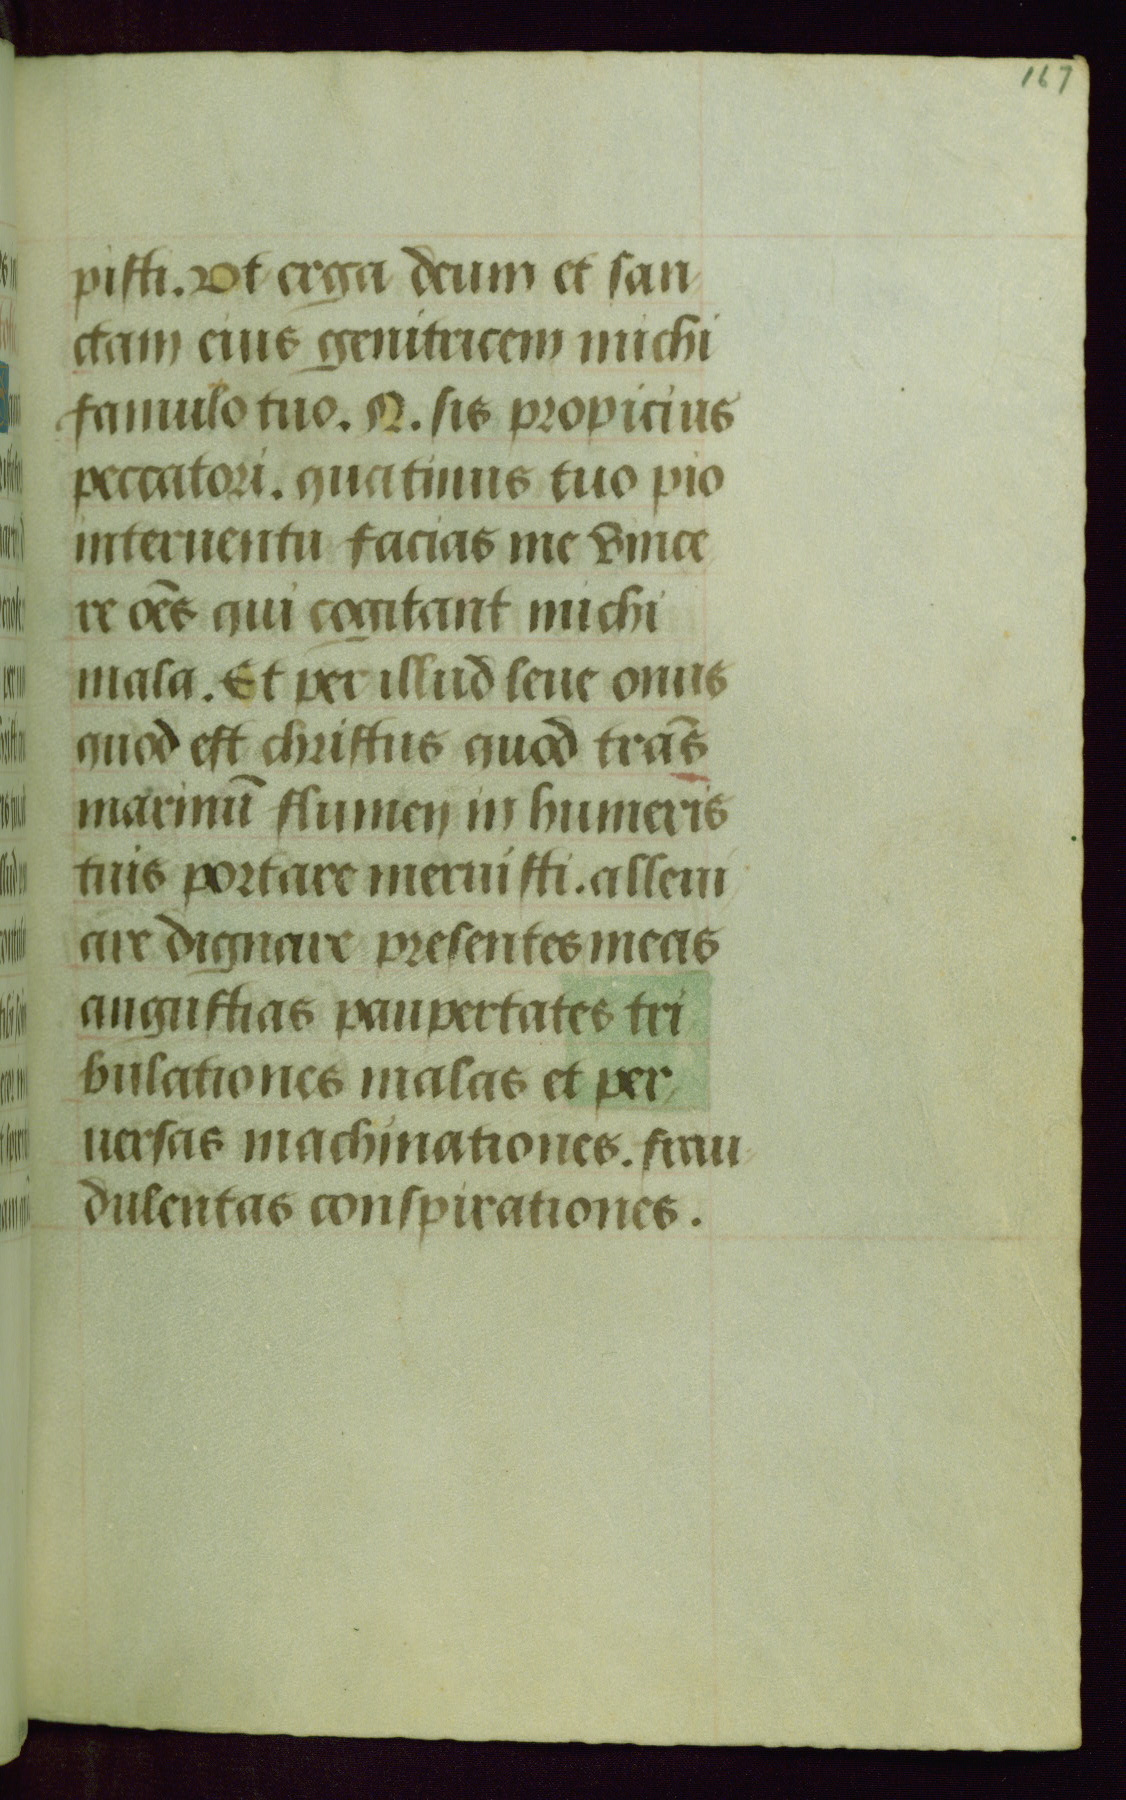 167
pisti. Ut erga deum et san
ctam eius genitricem michi
famulo tuo. N. sis propicius
peccatori. quatinus tuo pio
interuentu facias me vince
re oēs qui cogitant michi
mala. Et per illud leue onus
quod est christus quod trās
marinū flumen in humeris
tuis portare meruisti. alleui
are dignare presentes meas
angustias paupertates tri
bulationes malas et per
uersas machinationes. frau
dulentas conspirationes.